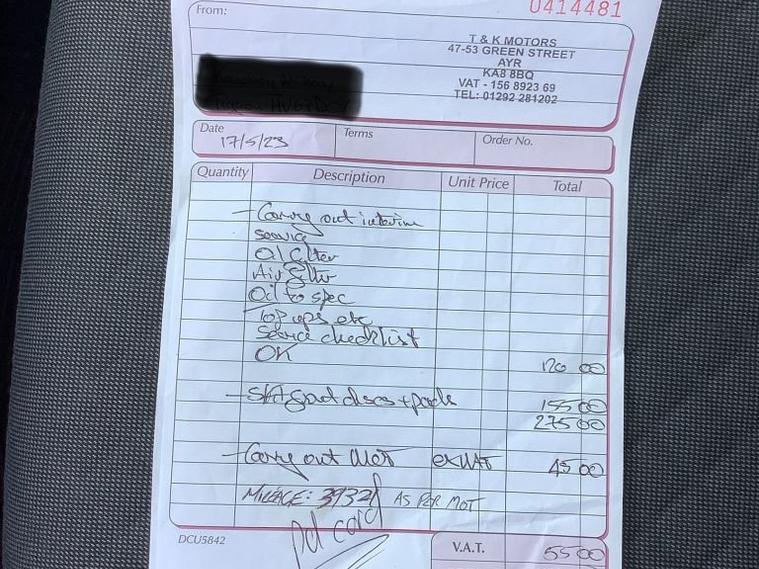 From:
0414481
T & K MOTORS
47-53 GREEN STREET
AYR
KA8 8BQ
VAT - 156 8923 69
TEL: 01292 281202
Date
17/5/23
Terms
Order No.
Quantity Description Unit Price Total
- Carry out interim
service
Oil filter
Air filter
Oil to spec
Top ups etc
Service checklist
OK 120 00
- discs + pads 155 00
275 00
- Carry out MOT exVAT 45 00
MILEAGE: AS PER MOT
pd card
DCU5842
V.A.T. 55 00